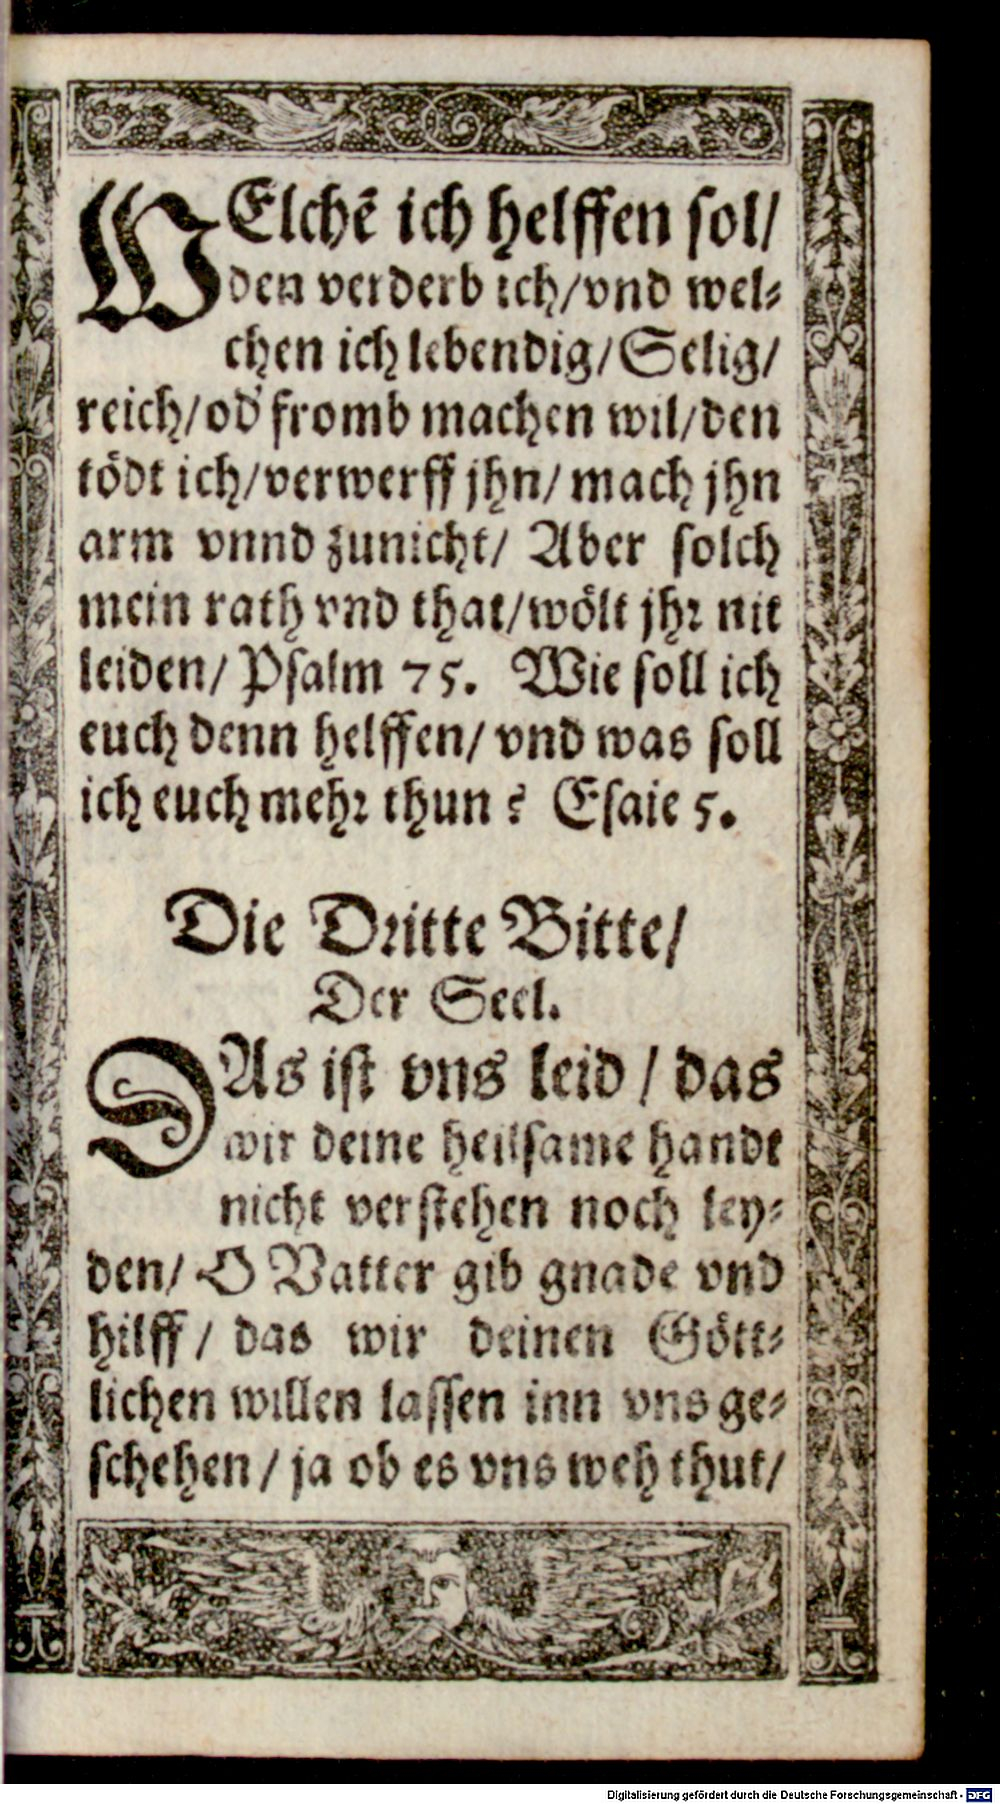 WElchē ich helffen sol/
den verderb ich/vnd wel-
chen ich lebendig/Selig/
reich/od' fromb machen wil/den
tödt ich/verwerff jhn/ mach jhn
arm vnnd zunicht/ Aber solch
mein rath vnd that/wölt jhr nit
leiden/ Psalm 75. Wie soll ich
euch denn helffen/ vnd was soll
ich euch mehr thun? Esaie 5.
Die Dritte Bitte/
Der Seel.
DAs ist vns leid / das
wir deine heilsame handt
nicht verstehen noch ley-
den/ O Vatter gib gnade vnd
hilff/ das wir deinen Gött-
lichen willen lassen inn vns ge-
schehen / ja ob es vns weh thut/
Digitalisierung gefördert durch die Deutsche Forschungsgemeinschaft - DFG